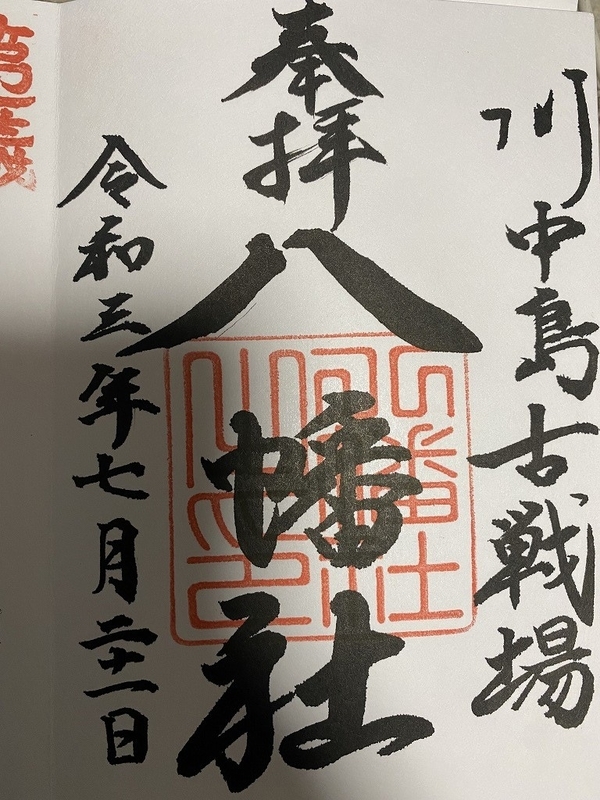 川中島古戦場
奉拝
八幡社
令和三年七月二十一日